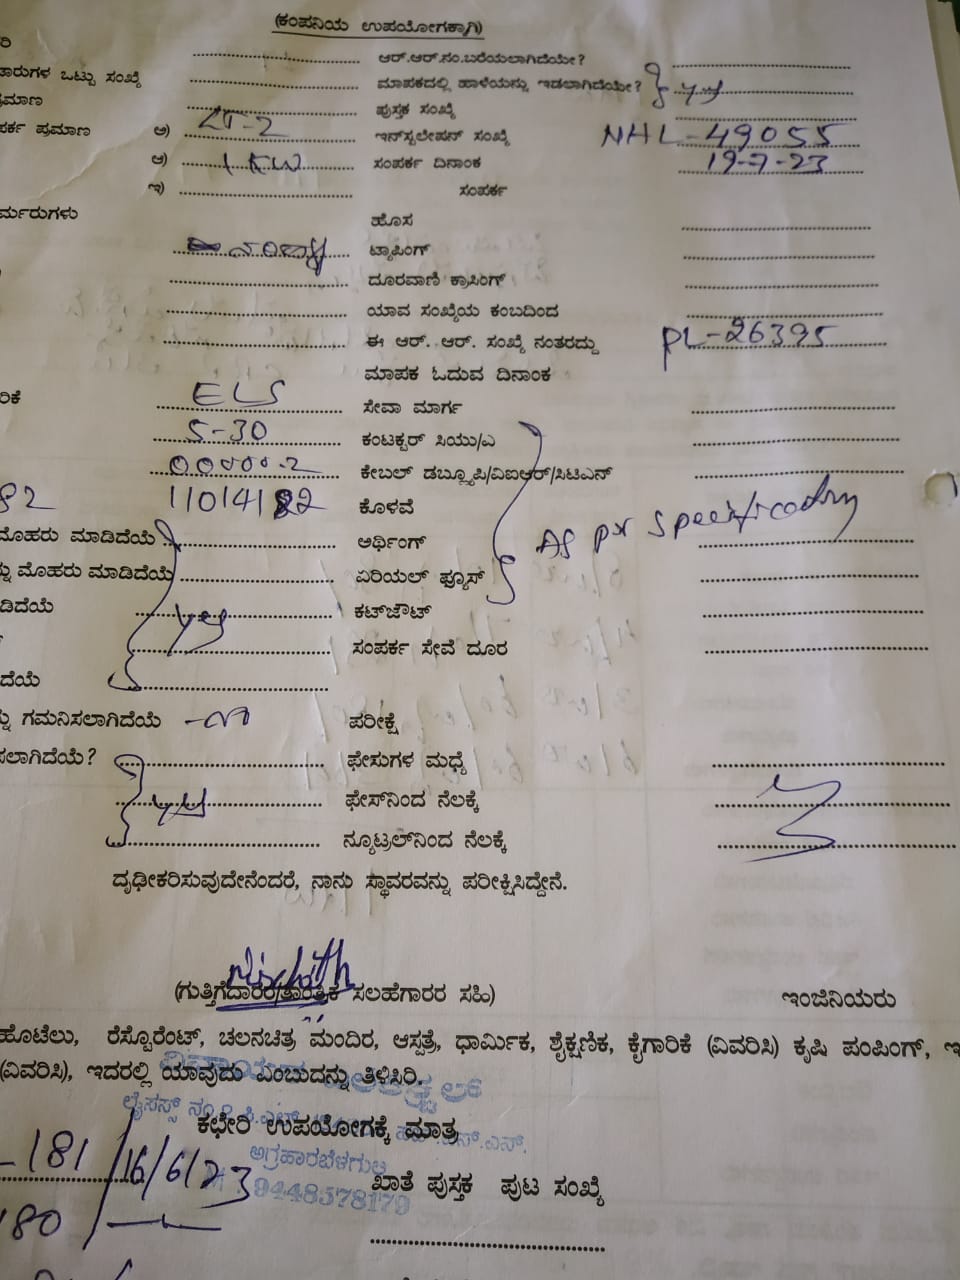 (ಕಂಪನಿಯ ಉಪಯೋಗಕ್ಕಾಗಿ)
ರಿ ಆರ್.ಆರ್.ನಂ.ಬರೆಯಲಾಗಿದೆಯೇ?
ದಾರುಗಳ ಒಟ್ಟು ಸಂಖ್ಯೆ ಮಾಪಕದಲ್ಲಿ ಹಾಳೆಯನ್ನು ಇಡಲಾಗಿದೆಯೇ?
ಪ್ರಮಾಣ ಪುಸ್ತಕ ಸಂಖ್ಯೆ
ಪರ್ಕ ಪ್ರಮಾಣ ಅ) LT-2 ಇನ್‌ಸ್ಟಲೇಷನ್ ಸಂಖ್ಯೆ NHL-49055
ಆ) 1 KW ಸಂಪರ್ಕ ದಿನಾಂಕ 19-7-23
ಇ) ಸಂಪರ್ಕ
ರ್ಮರುಗಳು ಹೊಸ
ಟ್ಯಾಪಿಂಗ್
ದೂರವಾಣಿ ಕ್ರಾಸಿಂಗ್
ಯಾವ ಸಂಖ್ಯೆಯ ಕಂಬದಿಂದ
ಈ ಆರ್. ಆರ್. ಸಂಖ್ಯೆ ನಂತರದ್ದು PL-26395
ಮಾಪಕ ಓದುವ ದಿನಾಂಕ
ರಿಕೆ ELS ಸೇವಾ ಮಾರ್ಗ
5-30 ಕಂಟಕ್ಟರ್ ಸಿಯು/ಎ
00000-2 ಕೇಬಲ್ ಡಬ್ಲ್ಯೂಪಿ/ವಿಐಆರ್/ಸಿಟಿಎಸ್
82 11014182 ಕೊಳವೆ
ಮೊಹರು ಮಾಡಿದೆಯೆ ಅರ್ಥಿಂಗ್ As per specification
ನ್ನು ಮೊಹರು ಮಾಡಿದೆಯೆ ಏರಿಯಲ್ ಫ್ಯೂಸ್
ಡಿದೆಯೆ ಕಟ್‌ಔಟ್
ಸಂಪರ್ಕ ಸೇವೆ ದೂರ
ದೆಯೆ
ನ್ನು ಗಮನಿಸಲಾಗಿದೆಯೆ ಪರೀಕ್ಷೆ
ಸಲಾಗಿದೆಯೆ? ಫೇಸುಗಳ ಮಧ್ಯೆ
ಫೇಸ್‌ನಿಂದ ನೆಲಕ್ಕೆ
ನ್ಯೂಟ್ರಲ್‌ನಿಂದ ನೆಲಕ್ಕೆ
ದೃಢೀಕರಿಸುವುದೇನೆಂದರೆ, ನಾನು ಸ್ಥಾವರವನ್ನು ಪರೀಕ್ಷಿಸಿದ್ದೇನೆ.
(ಗುತ್ತಿಗೆದಾರರ/ತಾಂತ್ರಿಕ ಸಲಹೆಗಾರರ ಸಹಿ) ಇಂಜಿನಿಯರು
ಹೊಟೆಲು, ರೆಸ್ಟೊರೆಂಟ್, ಚಲನಚಿತ್ರ ಮಂದಿರ, ಆಸ್ಪತ್ರೆ, ಧಾರ್ಮಿಕ, ಶೈಕ್ಷಣಿಕ, ಕೈಗಾರಿಕೆ (ವಿವರಿಸಿ) ಕೃಷಿ ಪಂಪಿಂಗ್, ಇ
(ವಿವರಿಸಿ), ಇದರಲ್ಲಿ ಯಾವುದು ಎಂಬುದನ್ನು ತಿಳಿಸಿರಿ.
ಕಛೇರಿ ಉಪಯೋಗಕ್ಕೆ ಮಾತ್ರ
181 / 16/6/23 ಖಾತೆ ಪುಸ್ತಕ ಪುಟ ಸಂಖ್ಯೆ
9448578179
180